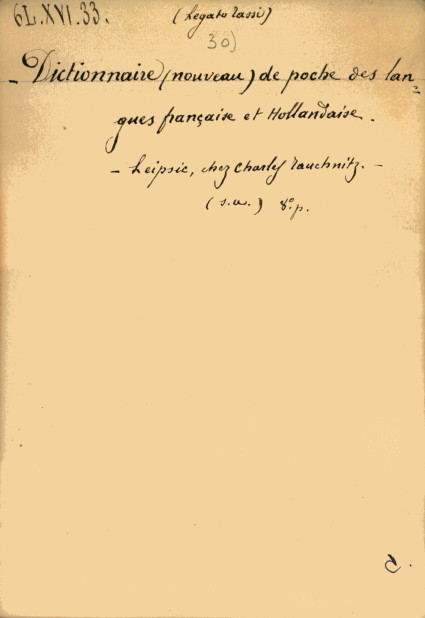 6L.XVI.33. (Legato Tassi)
30)
- Dictionnaire (nouveau) de poche des lan=
gues française et Hollandaise.
- Leipsic, chez Charles Tauchnitz. -
(s.a.) 8.° p.